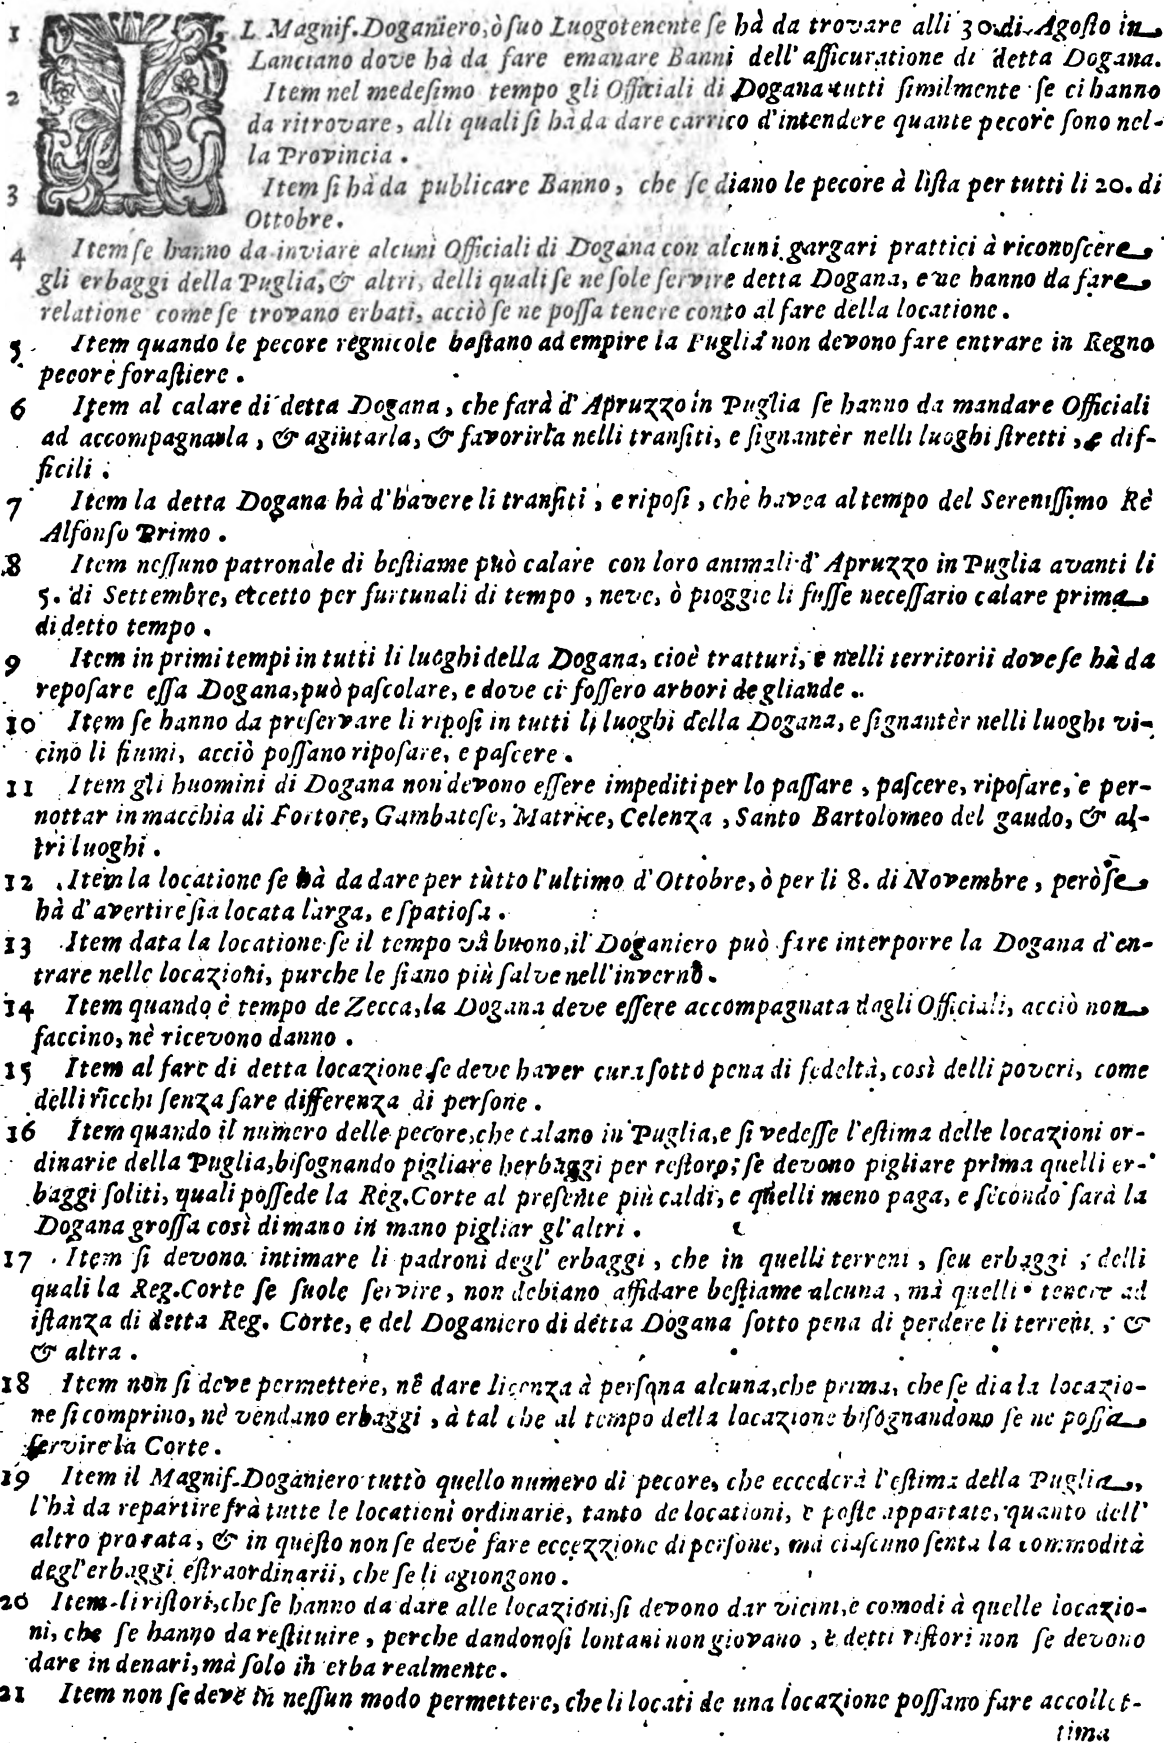 1 IL Magnif. Doganiero, ò suo Luogotenente se hà da trovare alli 30. di Agosto in
Lanciano dove hà da fare emanare Banni dell' assicuratione di detta Dogana.
2 Item nel medesimo tempo gli Officiali di Dogana tutti similmente se ci hanno
da ritrovare, alli quali si hà da dare carrico d'intendere quante pecore sono nel-
la Provincia.
3 Item si hà da publicare Banno, che se diano le pecore à lista per tutti li 20. di
Ottobre.
4 Item se hanno da inviare alcuni Officiali di Dogana con alcuni gargari prattici à riconoscere
gli erbaggi della Puglia, & altri, delli quali se ne sole servire detta Dogana, e ne hanno da fare
relatione come se trovano erbati, acciò se ne possa tenere conto al fare della locatione.
5 Item quando le pecore regnicole bastano ad empire la Puglia non devono fare entrare in Regno
pecore forastiere.
6 Item al calare di detta Dogana, che farà d' Apruzzo in Puglia se hanno da mandare Officiali
ad accompagnarla, & agiutarla, & favorirla nelli transiti, e signantèr nelli luoghi stretti, e dif-
ficili.
7 Item la detta Dogana hà d'havere li transiti, e riposi, che havea al tempo del Serenissimo Rè
Alfonso Primo.
8 Item nessuno patronale di bestiame può calare con loro animali d' Apruzzo in Puglia avanti li
5. di Settembre, etcetto per furtunali di tempo, neve, ò pioggie li fusse necessario calare prima
di detto tempo.
9 Item in primi tempi in tutti li luoghi della Dogana, cioè tratturi, e nelli territorii dove se hà da
reposare essa Dogana, può pascolare, e dove ci fossero arbori de gliande.
10 Item se hanno da preservare li riposi in tutti li luoghi della Dogana, e signantèr nelli luoghi vi-
cino li fiumi, acciò possano riposare, e pascere.
11 Item gli huomini di Dogana non devono essere impediti per lo passare, pascere, riposare, e per-
nottar in macchia di Fortore, Gambatese, Matrice, Celenza, Santo Bartolomeo del gaudo, & al-
tri luoghi.
12 Item la locatione se hà da dare per tutto l'ultimo d'Ottobre, ò per li 8. di Novembre, però se
hà d'avertire sia locata larga, e spatiosa.
13 Item data la locatione se il tempo và buono, il Doganiero può fare interporre la Dogana d'en-
trare nelle locazioni, purche le siano più salve nell'inverno.
14 Item quando è tempo de Zecca, la Dogana deve essere accompagnata dagli Officiali, acciò non
faccino, nè ricevono danno.
15 Item al fare di detta locazione se deve haver cura sotto pena di fedeltà, così delli poveri, come
delli ricchi senza fare differenza di persone.
16 Item quando il numero delle pecore, che calano in Puglia, e si vedesse l'estima delle locazioni or-
dinarie della Puglia, bisognando pigliare herbaggi per restoro, se devono pigliare prima quelli er-
baggi soliti, quali possede la Reg. Corte al presente più caldi, e quelli meno paga, e secondo sarà la
Dogana grossa così di mano in mano pigliar gl'altri.
17 Item si devono intimare li padroni degl' erbaggi, che in quelli terreni, seu erbaggi, delli
quali la Reg. Corte se suole servire, non debiano affidare bestiame alcuna, mà quelli tenere ad
istanza di detta Reg. Corte, e del Doganiero di detta Dogana sotto pena di perdere li terreni, &
& altra.
18 Item non si deve permettere, nè dare licenza à persona alcuna, che prima, che se dia la locazio-
ne si comprino, nè vendano erbaggi, à tal che al tempo della locazione bisognandono se ne possa
servire la Corte.
19 Item il Magnif. Doganiero tutto quello numero di pecore, che eccederà l'estima della Puglia,
l'hà da repartire frà tutte le locationi ordinarie, tanto de locationi, e poste appartate, quanto dell'
altro prorata, & in questo non se deve fare eccezzione di persone, mà ciascuno senta la commodità
degl'erbaggi estraordinarii, che se li agiongono.
20 Item li ristori, che se hanno da dare alle locazioni, si devono dar vicini, e comodi à quelle locazio-
ni, che se hanno da restituire, perche dandonosi lontani non giovano, e detti ristori non se devono
dare in denari, mà solo in erba realmente.
21 Item non se deve in nessun modo permettere, che li locati de una locazione possano fare accollet-
tima